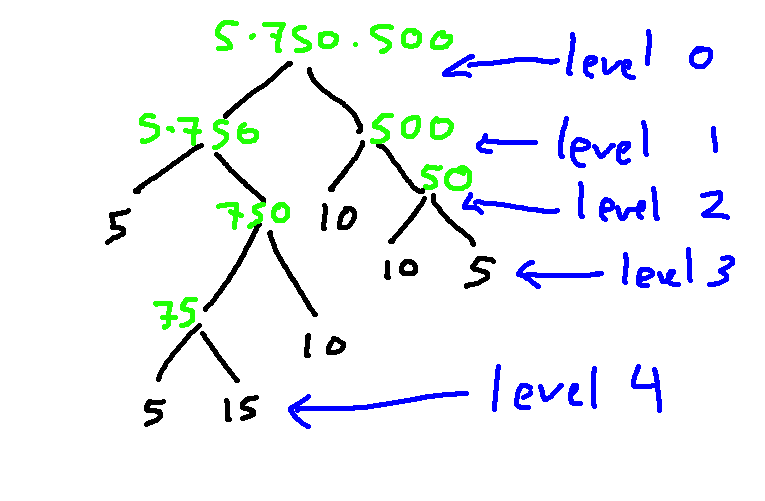 5.750.500
level 0
5.750 500
level 1
50
5 750 10
level 2
10 5
level 3
75
10
5 15
level 4